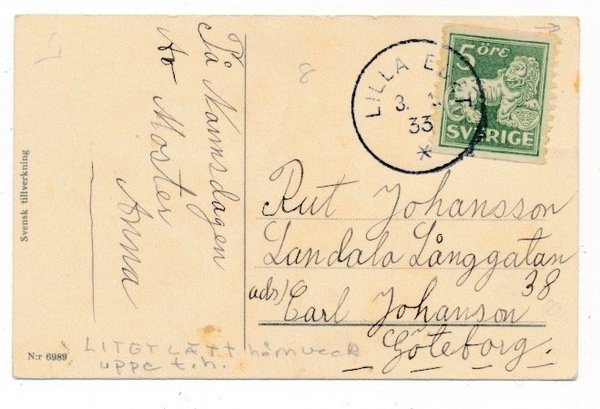 På Namnsdagen
Av Moster
Anna
Svensk tillverkning
N:r 6989
5 ÖRE
SVERIGE
LILLA EDET
3.
33
*
Rut Johansson
Landala Långgatan
38
ads/ Carl Johanson
Göteborg.
LITET LÄTT hörnveck
uppe t.h.
8